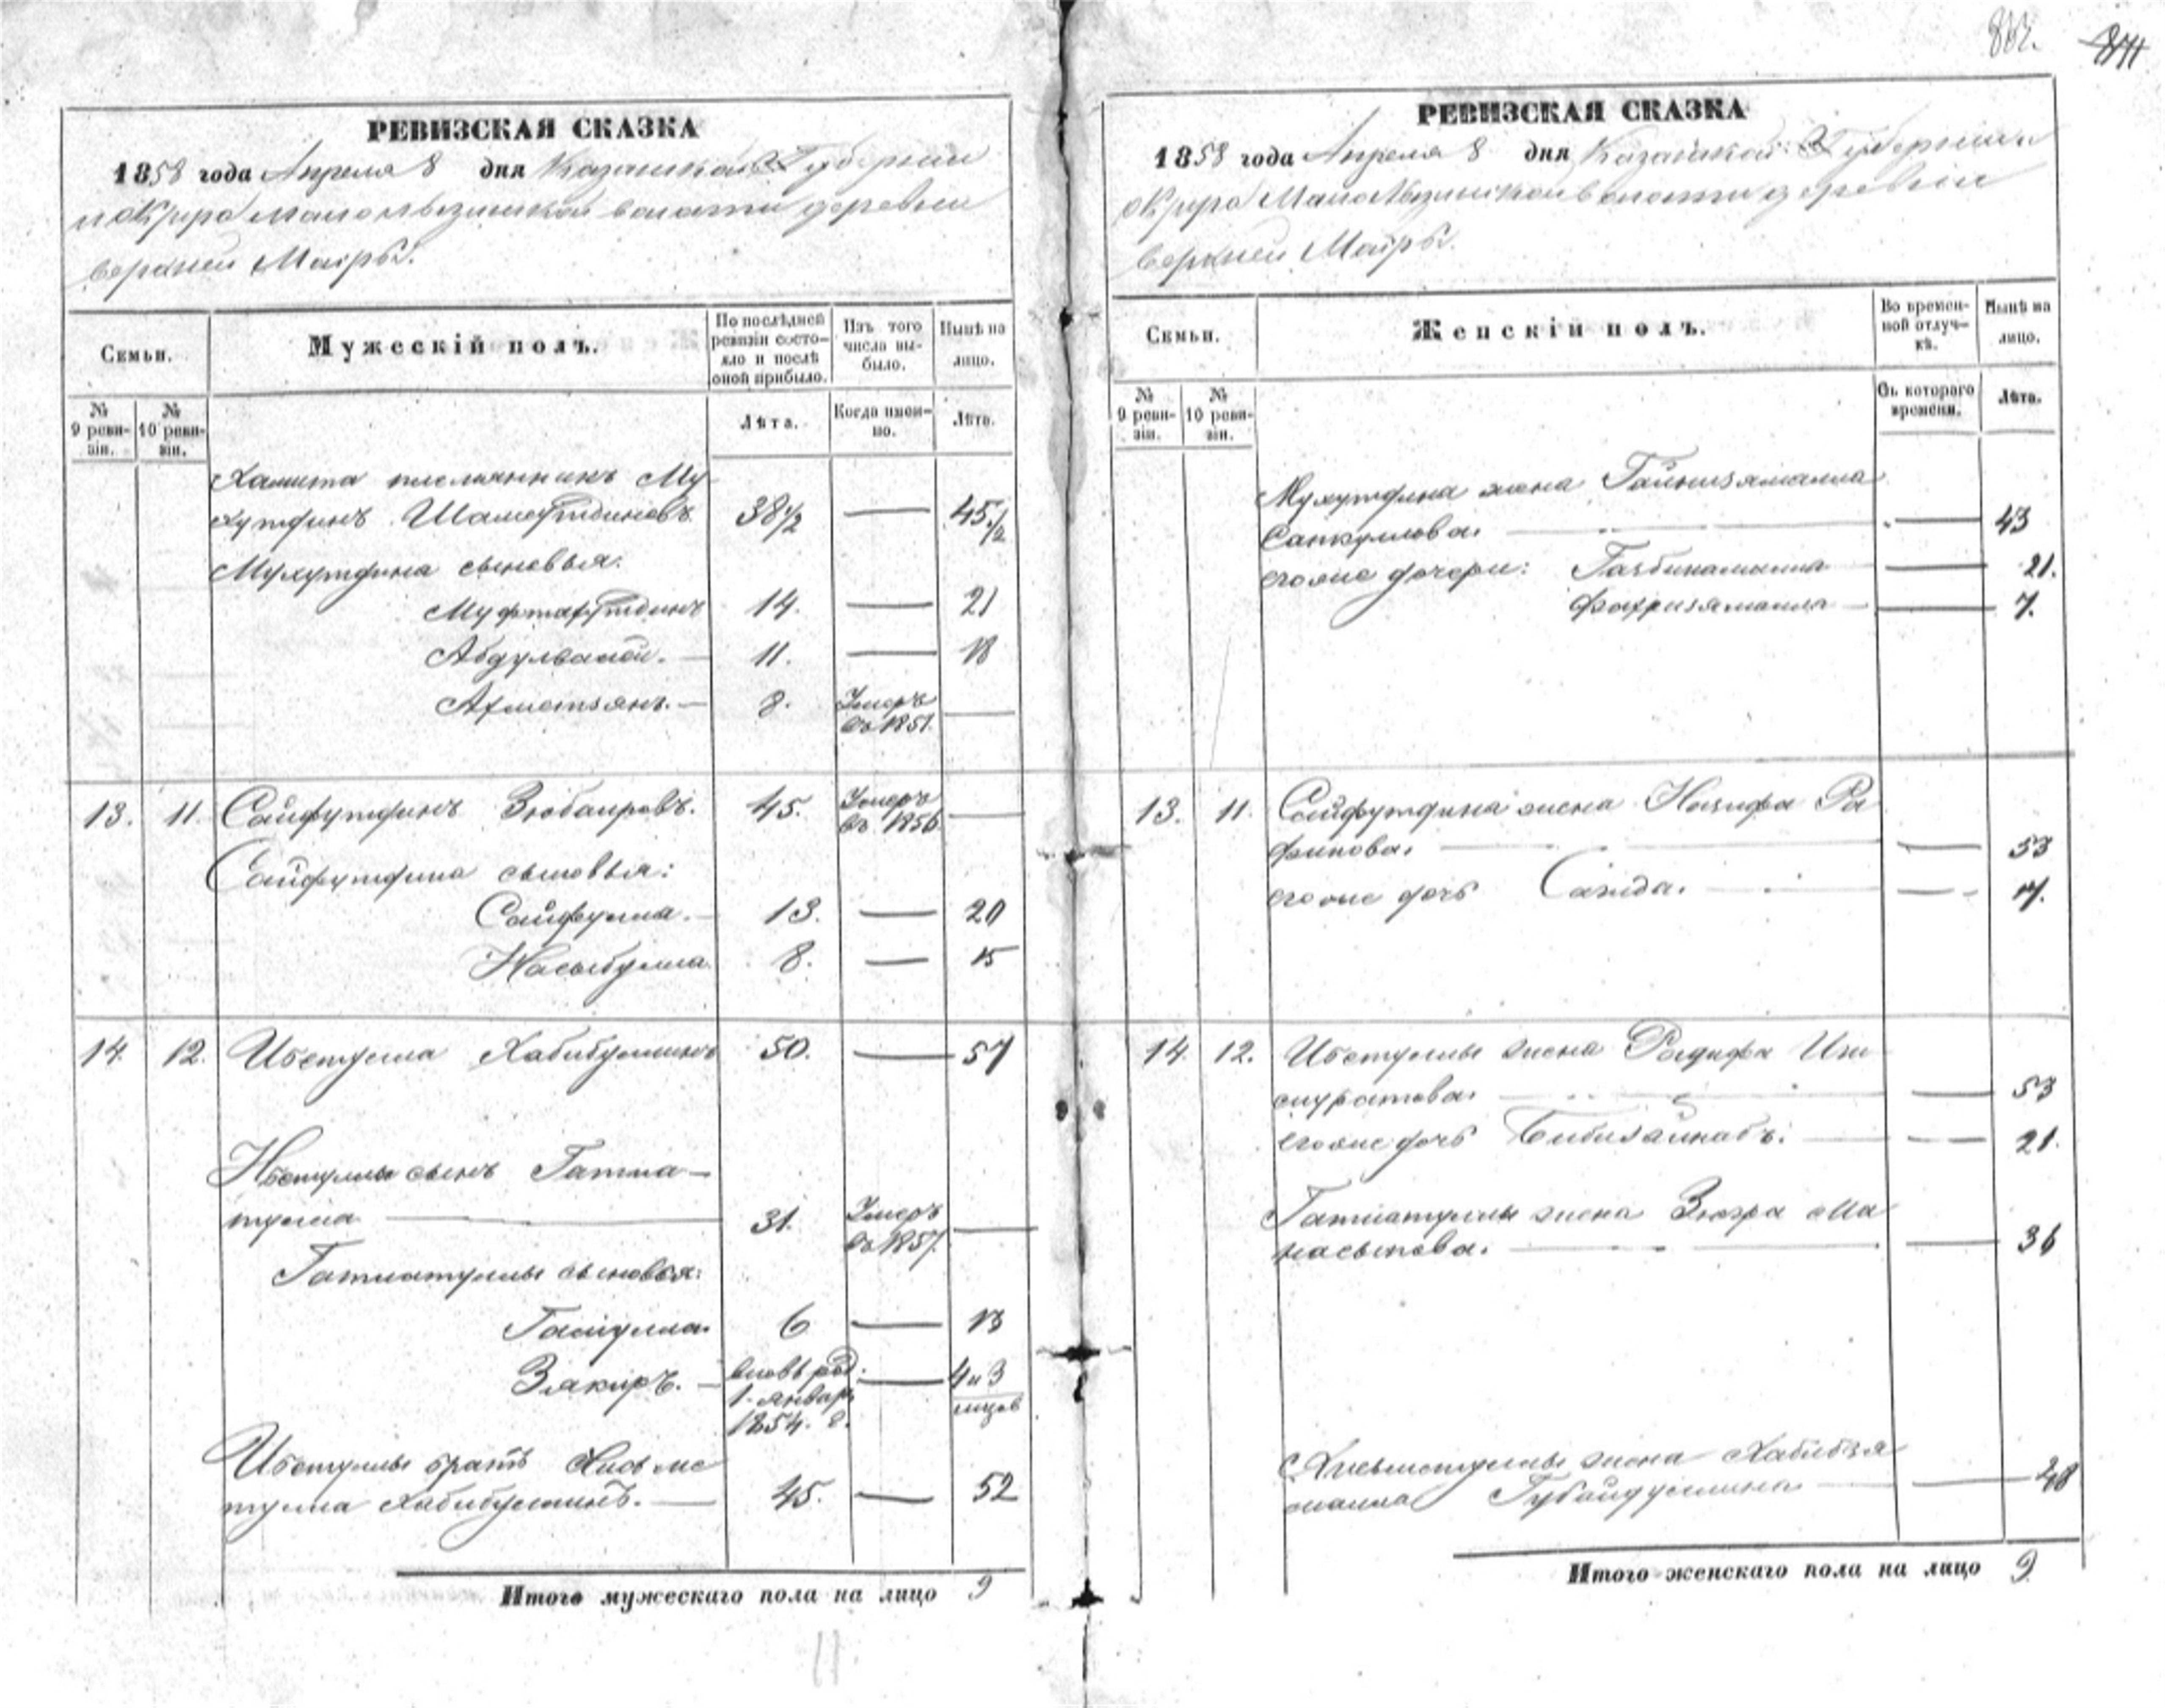 862.
871
РЕВИЗСКАЯ СКАЗКА
1858 года Апреля 8 дня Казанской Губернии
и округа волости деревни
верхней Маиры.
Семьи.
Мужескій полъ.
По послѣдней ревизіи состояло и послѣ оной прибыло.
Изъ того числа выбыло.
Нынѣ на лицо.
№ 9 реви-зіи.
№ 10 реви-зіи.
Лѣта.
Когда имен-но.
Лѣта.
Хамита племянникъ Му-
хутдинъ 38½ — 45½
Мухутдина сыновья:
14. — 21
Абдулвалей. — 11. — 18
Ахметзянъ. — 8. Умеръ въ 1851. —
13. 11. Сайфутдинъ Зюбаировъ. 45. Умеръ въ 1856. —
Сайфутдина сыновья:
Сайфулла. — 13. — 20
Насыбулла. 8. — 15
14. 12. Ибетулла Хабибуллинъ 50. — 57
Ибетуллы сынъ Гатиа-
тулла — 31. Умеръ въ 1857. —
Гатиатуллы сыновья:
6 — 13
Закиръ. — вновь род: — 4 и 3
1. январ. месяц
1854. г.
Ибетуллы братъ
тулла Хабибуллинъ. — 45. — 52
Итого мужескаго пола на лицо 9
РЕВИЗСКАЯ СКАЗКА
1858 года Апреля 8 дня Казанской Губернии
округа волости деревни
верхней Маиры.
Семьи.
Женскій полъ.
Во времен-ной отлуч-кѣ.
Нынѣ на лицо.
№ 9 реви-зіи.
№ 10 реви-зіи.
Съ котораго времени.
Лѣта.
Мухутдина жена Гайнизямалла
Сапкулова. — — 43
его же дочери: — 21.
Фахризямалла — — 7.
13. 11. Сайфутдина жена Назифа Ра
фикова. — — 53
его же дочь Саида. — — 17.
14. 12. Ибетуллы жена Радифа Иш
муратова. — — 53
его же дочь Бибизайнабъ. — — 21.
Гатиатуллы жена Зюгра Ма
насыпова. — — 36
жена Хабибзя
малла Губайдуллина — — 48
Итого женскаго пола на лицо 9